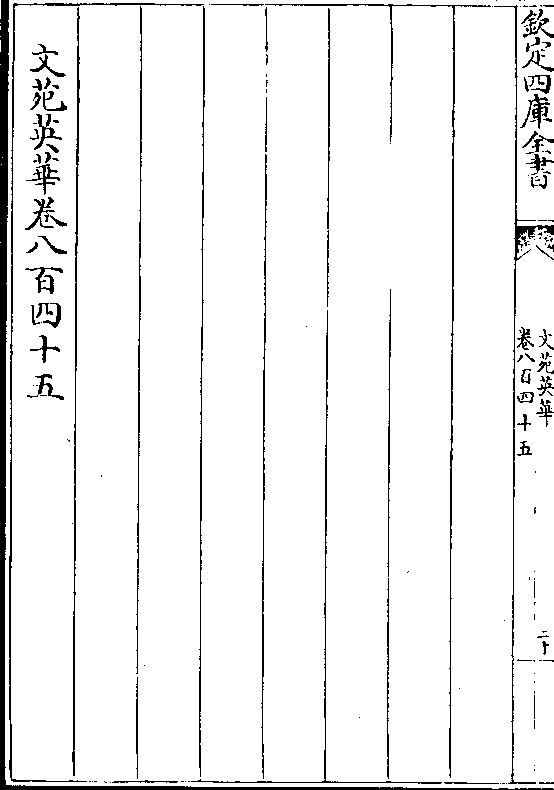 欽定四庫全書
文苑英華
卷八百四十五
二十
文苑英華卷八百四十五